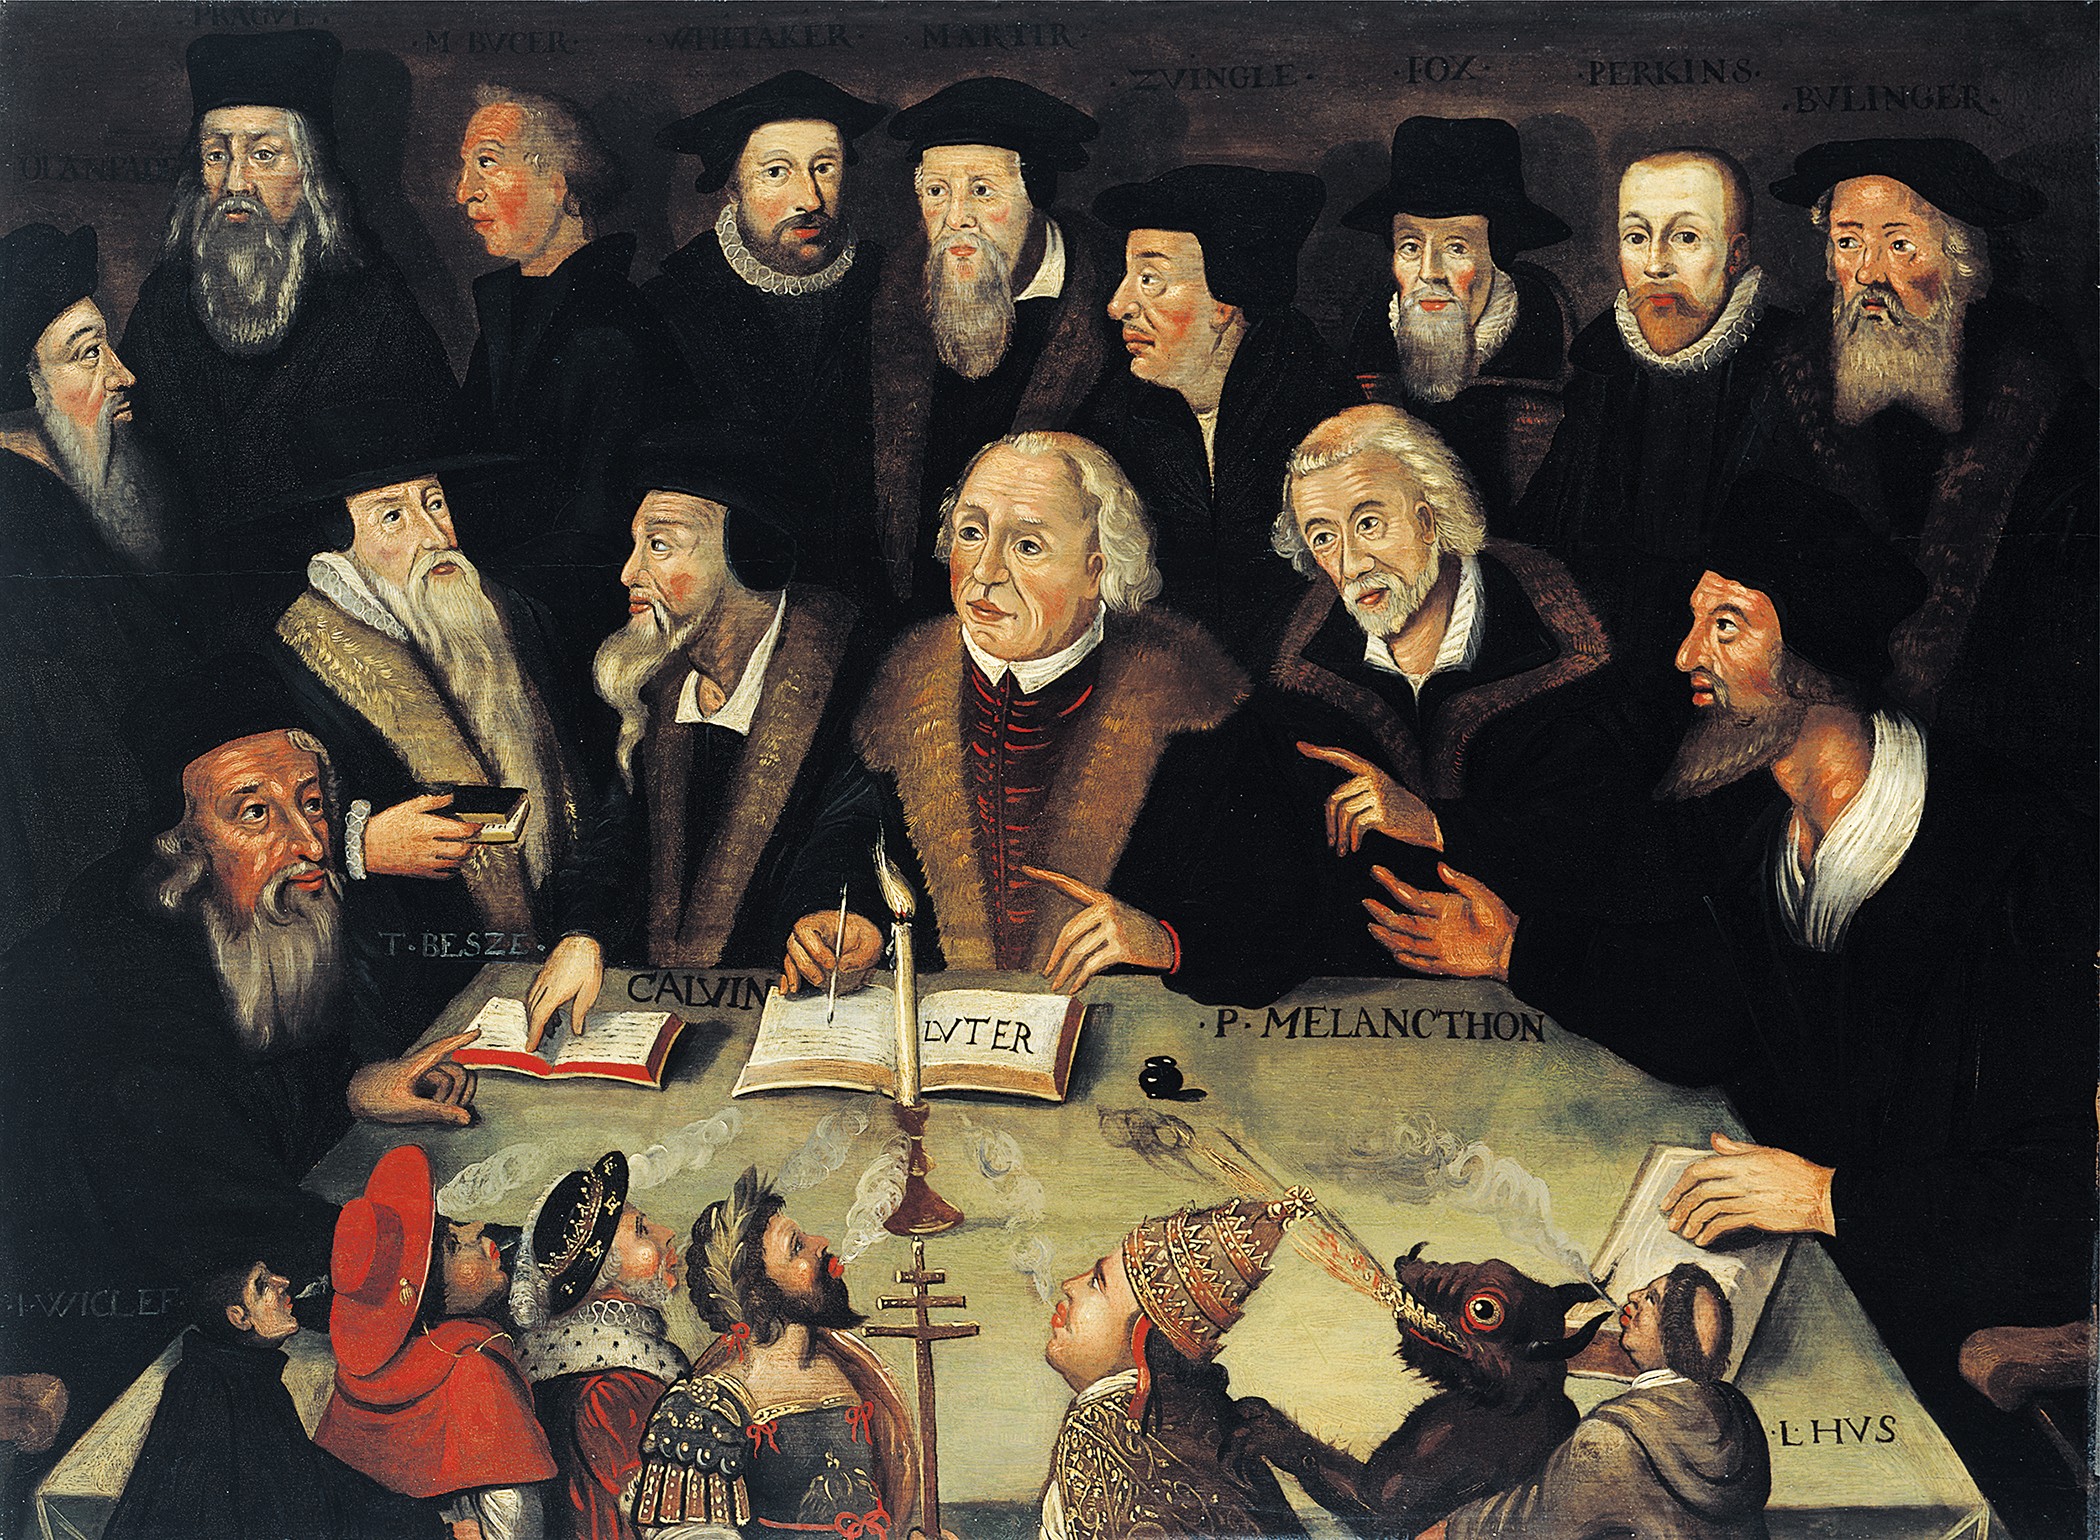 PRAGVE·
·M BVCER·
·WHITAKER·
·MARTIR·
·ZVINGLE·
·FOX·
·PERKINS·
·BVLINGER·
T·BESZE·
CALVIN
LVTER
·P·MELANCTHON
·I·WICLEF
·I·HVS